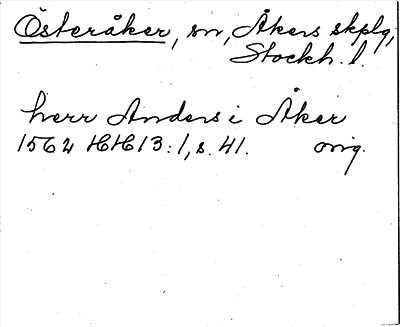 Österåker, sn, Åkers skplg,
Stockh. l.
herr Anders i Åker
1562 HH 13:1, s. 41. orig.